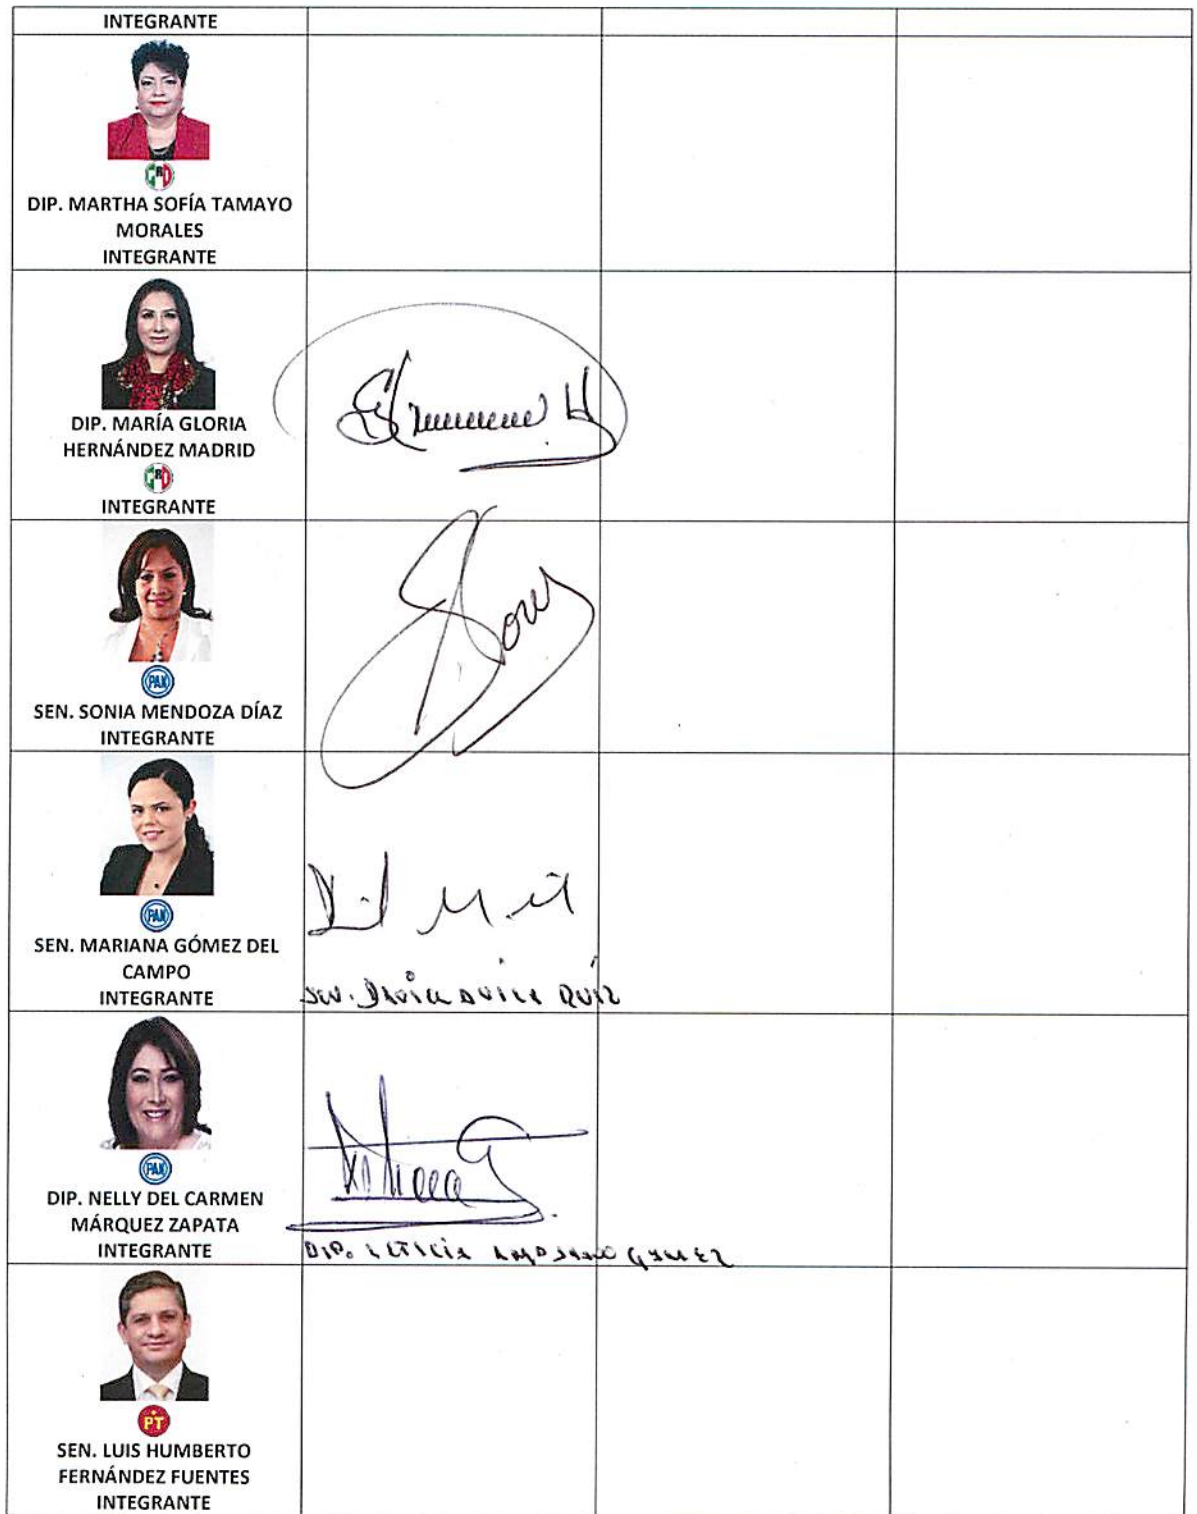 INTEGRANTE
PRI
DIP. MARTHA SOFÍA TAMAYO
MORALES
INTEGRANTE
DIP. MARÍA GLORIA
HERNÁNDEZ MADRID
PRI
INTEGRANTE
PAN
SEN. SONIA MENDOZA DÍAZ
INTEGRANTE
PAN
SEN. MARIANA GÓMEZ DEL
CAMPO
INTEGRANTE
SEN. DAVID AVILA RUIZ
PAN
DIP. NELLY DEL CARMEN
MÁRQUEZ ZAPATA
INTEGRANTE
DIP. LETICIA GOMEZ
PT
SEN. LUIS HUMBERTO
FERNÁNDEZ FUENTES
INTEGRANTE